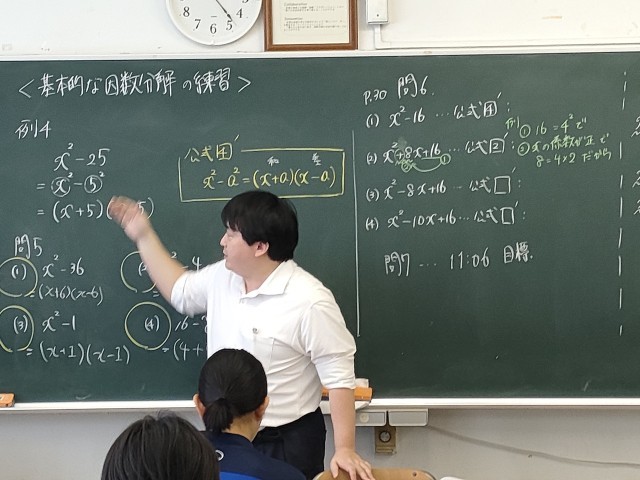 <基本的な因数分解の練習>
例4
x²-25
= x²-5²
= (x+5)(
5)
公式4'
和 差
x²-a²=(x+a)(x-a)
問5
(1) x²-36
=(x+6)(x-6)
(3) x²-1
=(x+1)(x-1)
(4) 16-
=(4+
P.30 問6
(1) x²-16 … 公式4':
(2) x²+8x+16 … 公式2':
(3) x²-8x+16 … 公式□':
(4) x²-10x+16 … 公式□':
例 ① 16=4²で
② xの係数が正で
8=4×2 だから
問7 … 11:06 目標.
8 7 6 5 4